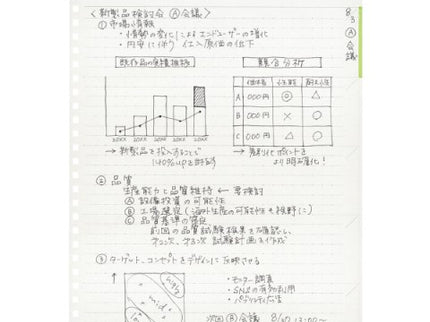 〈新製品検討会 Ⓐ会議〉
8/3 Ⓐ会議
① 市場情報
・情勢の変化によるエンドユーザーの増化
・円安に伴う 仕入原価の低下
既存品の実積推移
競合分析
価格 小型軽 耐久性
A 000円 ◎ △
B 000円 × ○
C 000円 △ ○
20XX 20XX 20XX 20XX 20XX
→ 新製品を投入することで 140%upを目指す
→ 差別化ポイントをより明確化!
② 品質
生産能力と品質維持 ← 要検討
Ⓐ 設備投資の可能性
Ⓑ 工場選定(海外生産の可能性も視野に)
Ⓒ 品質基準の選定
前回の品質試験結果を確認し、
第2次、第3次 試験計画を作成
③ ターゲット、コンセプトをデザインに反映させる
high
mid
・モニター調査
・SNSの有効利用
・パブリシティ広告
次回Ⓑ会議 8/20 13:00〜